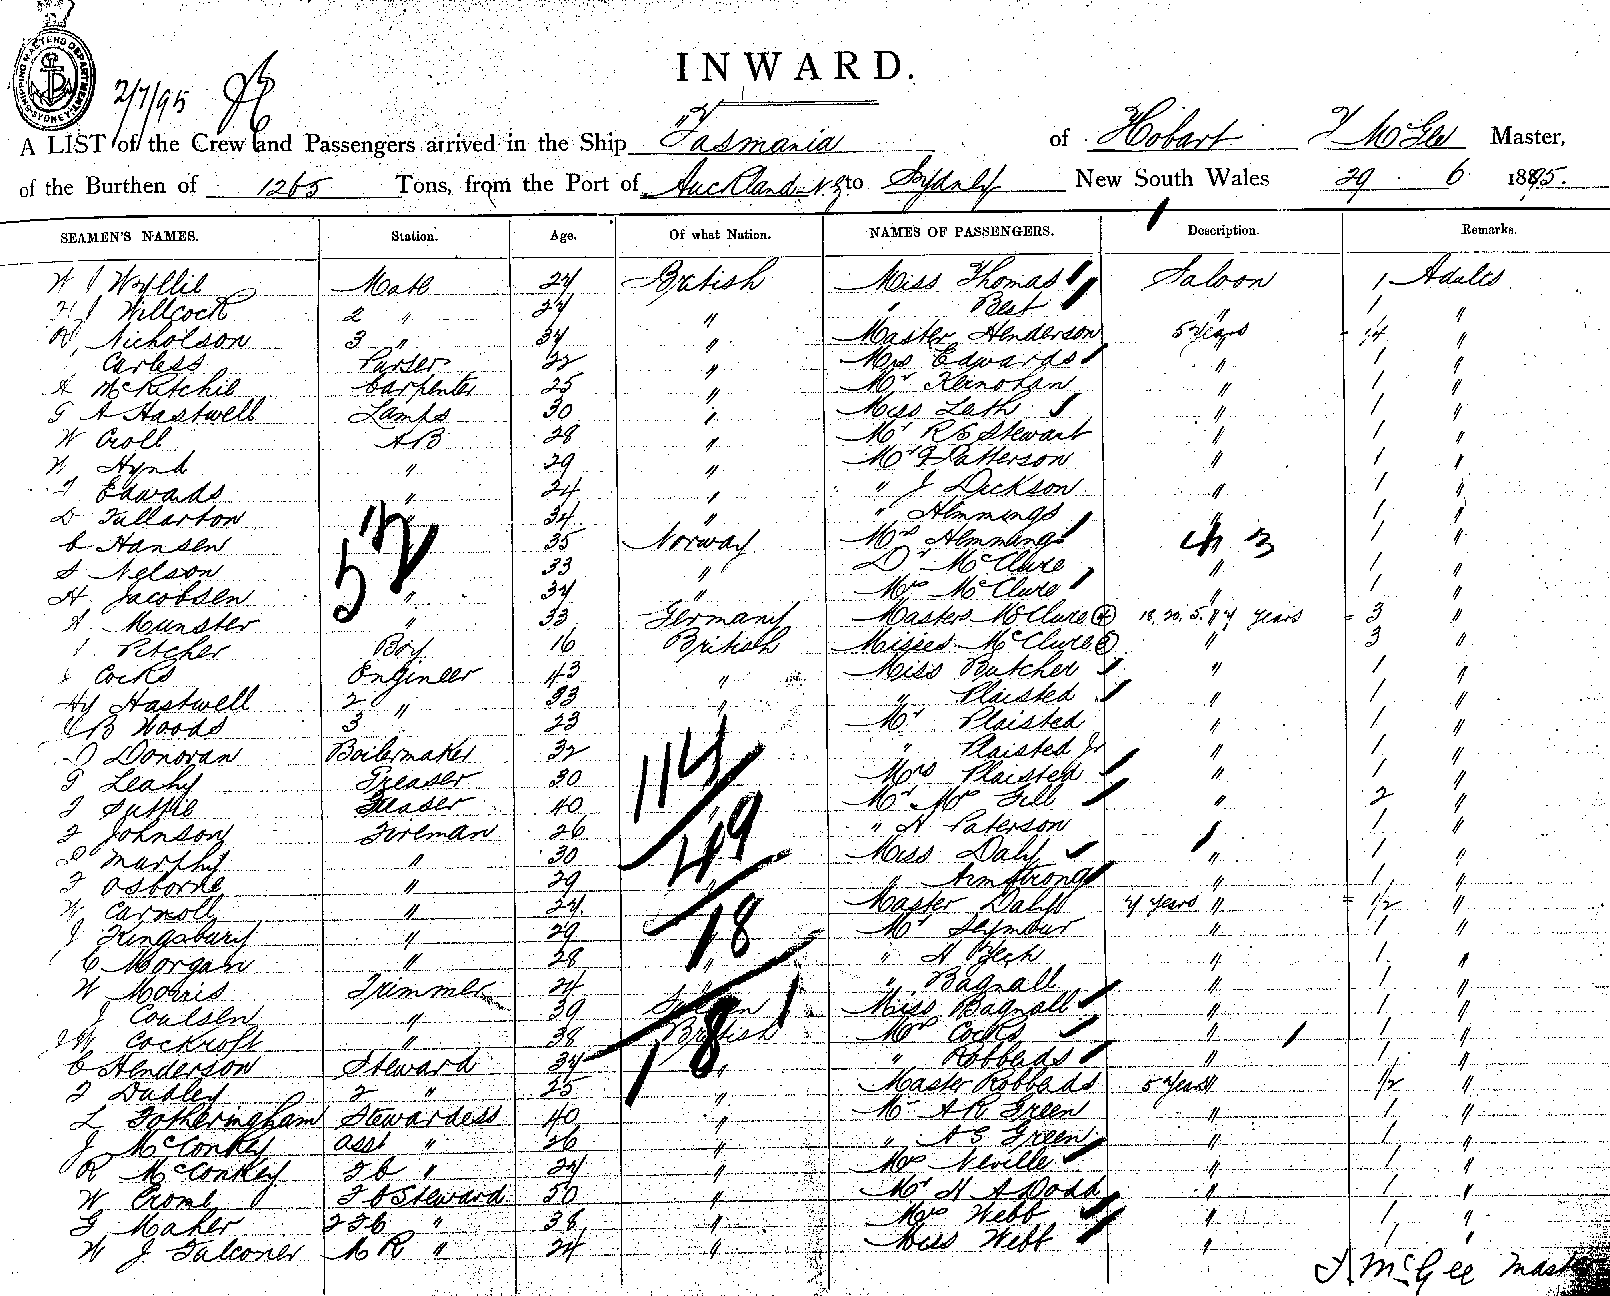 SHIPPING MASTERS DEPARTMENT SYDNEY
2/7/95
INWARD.
A LIST of the Crew and Passengers arrived in the Ship "Tasmania of Hobart T McGee Master,
of the Burthen of 1265 Tons, from the Port of Auckland N.Z. to Sydney New South Wales 29 . 6 1895.
SEAMEN'S NAMES. Station. Age. Of what Nation. NAMES OF PASSENGERS. Description. Remarks.
W J Wyllie Mate 24 British Miss Thomas Saloon 1 Adults
H J Willcock 2 " 24 " " Best " 1 "
R Nicholson 3 " 34 " Master Henderson 5 years "
Carless Purser 22 " Mrs Edwards " 1 "
A McRitchie Carpenter 25 " Mr 1 "
G A Hastwell Lamps 30 " Miss Lath " 1 "
W Croll AB 28 " Mr R E Stewart " 1 "
W Hynd " 29 " Mr Patterson " 1 "
T Edwads " 24 " " J Dickson " 1 "
D Fullarton " 34 " " Hemmings " 1 "
C Hansen 35 Norway Mrs Hemmings 43 1 "
S Nelson 33 " Dr McClure " 1 "
H Jacobsen " 34 " Mrs McClure 1 "
A Munster " 33 Germany Masters McClure 4 years = 3 "
Pitcher Boy 16 British Misses McClure 3 " 3 "
Cocks Engineer 43 " Miss Butcher " 1 "
Hy Hastwell 2 " 33 " " Plaisted " 1 "
B Woods 3 " 23 Mr Plaisted " 1 "
Donovan Boilermaker 32 " Plaisted Jr " 1 "
G Leahy Greaser 30 Mrs Plaisted " 1 "
Greaser 40 Mr Mrs Gill " 2 "
Johnson Foreman 26 " H Paterson 1 "
Murphy " 30 Miss Daly " 1 "
Osborne " 29 " Armstrong " 1 "
W Carmoll " 24 Master Daly 4 years " = 1/2 "
J Kingsbury " 29 Mr Seymour " 1 "
C Morgan " 28 " " 1 "
W Morris Trimmer 24 " Bagnall " 1 "
J Coulsen " 39 Miss Bagnall " 1 "
Cockroft " 38 British Mrs Cocks " 1 "
C Henderson Steward 34 " " Robbads " 1 "
Dudley 2 " 25 " Master Robbads 5 years 1/2 "
L Fotheringham Stewardess 40 " Mr A R Green " 1 "
J McConkey asst " 26 " " A E Green " 1 "
R McConkey " 24 " Mrs Neville " 1 "
W Cromb Steward 50 " Mr H A Dodd " 1 "
G Maher " 38 " Mrs Webb " 1 "
W J Falconer M R " 24 " Miss Webb " "
52
114
49
18
18
T. McGee Master